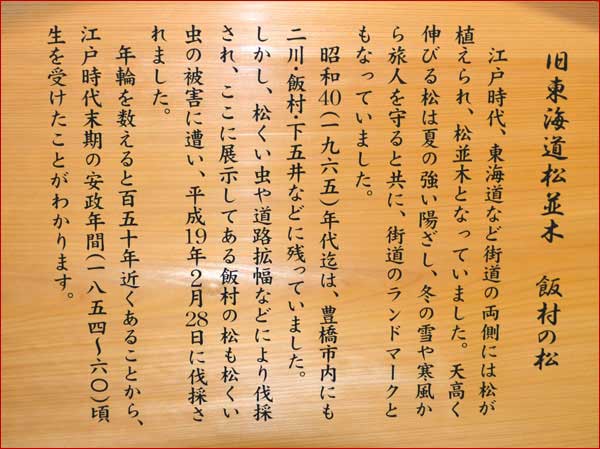 旧東海道松並木　飯村の松
江戸時代、東海道など街道の両側には松が
植えられ、松並木となっていました。天高く
伸びる松は夏の強い陽ざし、冬の雪や寒風か
ら旅人を守ると共に、街道のランドマークと
もなっていました。
昭和40(一九六五)年代迄は、豊橋市内にも
二川・飯村・下五井などに残っていました。
しかし、松くい虫や道路拡幅などにより伐採
され、ここに展示してある飯村の松も松くい
虫の被害に遭い、平成19年2月28日に伐採さ
れました。
年輪を数えると百五十年近くあることから、
江戸時代末期の安政年間(一八五四〜六〇)頃
生を受けたことがわかります。